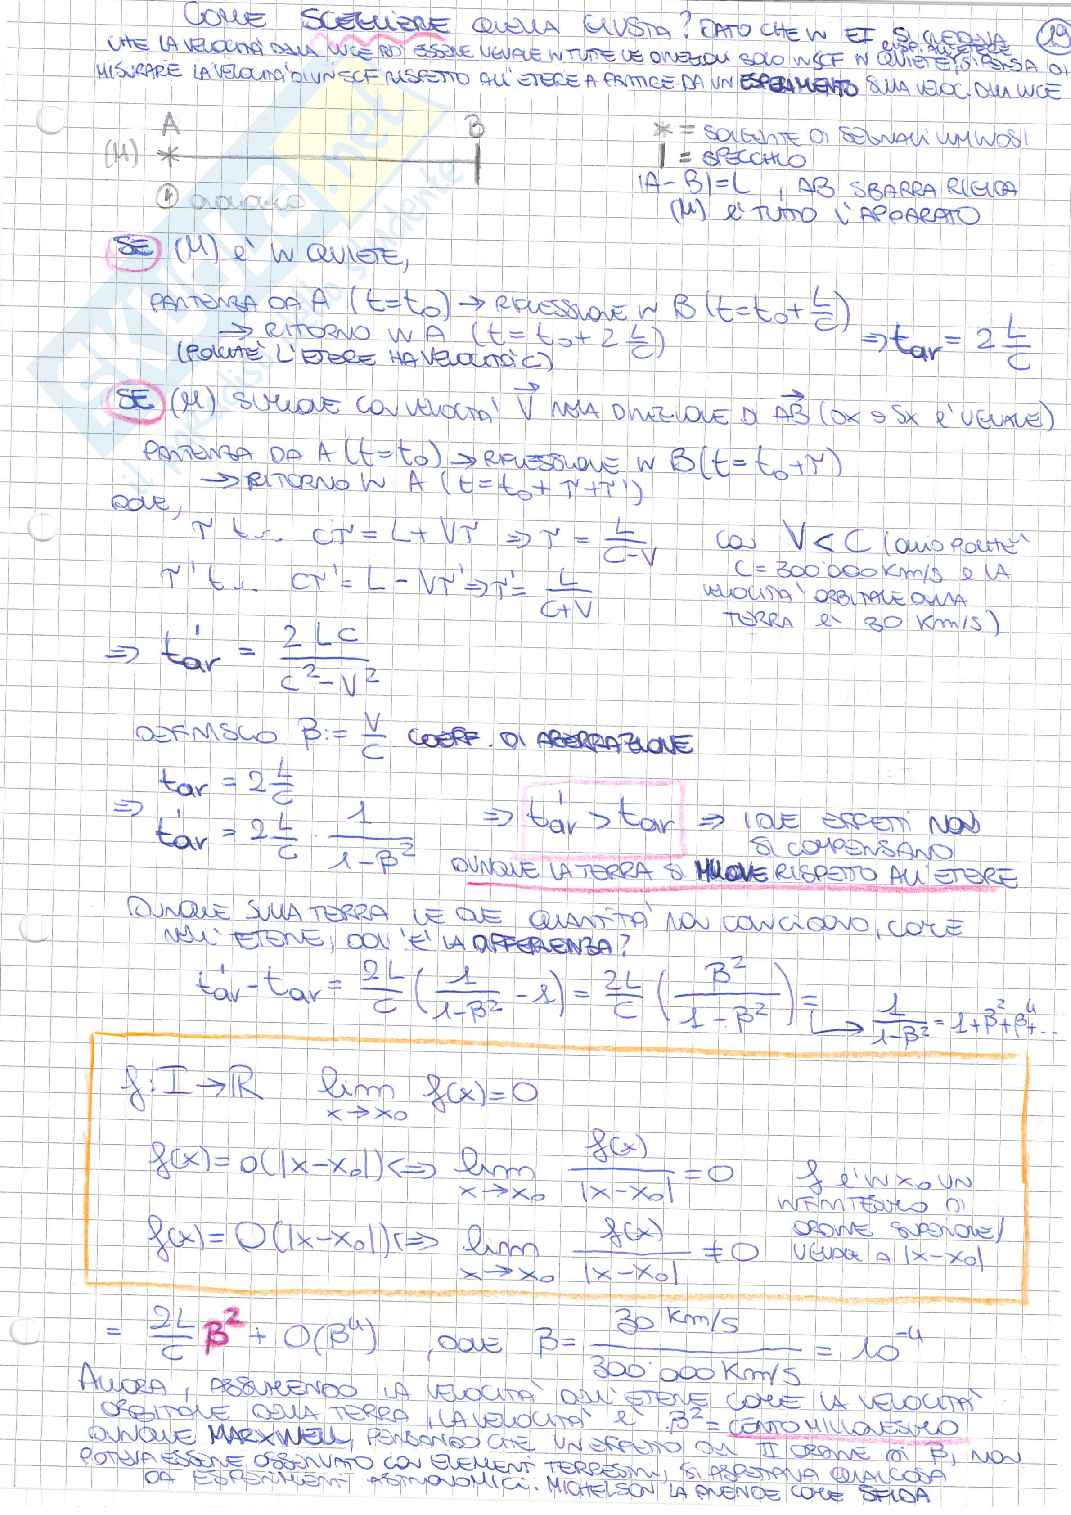 COME SCEGLIERE QUELLA GIUSTA? DATO CHE IN ET SI CREDEVA 19
CHE LA VELOCITÀ DELLA LUCE POTÈ ESSERE UGUALE IN TUTTE LE DIREZIONI SOLO IN SCF IN QUIETE RISP. ALL'ETERE, SI PENSA DI
MISURARE LA VELOCITÀ DI UN SCF RISPETTO ALL'ETERE A PARTIRE DA UN ESPERIMENTO SULLA VELOC. DELLA LUCE
A B
(M) *
* = SORGENTE DI SEGNALI LUMINOSI
| = SPECCHIO
|A-B|=L , AB SBARRA RIGIDA
(M) È TUTTO L'APPARATO
OROLOGIO
SE (M) È IN QUIETE,
PARTENZA DA A (t=t₀) → RIFLESSIONE IN B (t=t₀+L/C)
→ RITORNO IN A (t=t₀+2L/C) ⇒ tar = 2 L/C
(POICHÉ L'ETERE HA VELOCITÀ C)
SE (M) SI MUOVE CON VELOCITÀ V NELLA DIREZIONE DI AB (DX O SX È UGUALE)
PARTENZA DA A (t=t₀) → RIFLESSIONE IN B (t=t₀+τ)
→ RITORNO IN A (t=t₀+τ+τ')
DOVE,
τ t.c. cτ = L+Vτ ⇒ τ = L/(C-V) CON V<C (OVVIO POICHÉ
τ' t.c. cτ' = L-Vτ' ⇒ τ' = L/(C+V) C=300'000 Km/s E LA
VELOCITÀ ORBITALE DELLA
TERRA È 30 Km/s)
⇒ t'ar = 2LC/(C²-V²)
DEFINISCO β := V/C COEFF. DI ABERRAZIONE
tar = 2 L/C
⇒ t'ar = 2 L/C · 1/(1-β²) ⇒ t'ar > tar ⇒ I DUE EFFETTI NON
SI COMPENSANO
DUNQUE LA TERRA SI MUOVE RISPETTO ALL'ETERE
DUNQUE SULLA TERRA LE DUE QUANTITÀ NON COINCIDONO, COME
NELL'ETERE, DOV'È LA DIFFERENZA?
t'ar - tar = 2L/C (1/(1-β²) - 1) = 2L/C (β²/(1-β²)) = → 1/(1-β²) = 1+β²+β⁴+...
f: I→ℝ lim x→x₀ f(x)=0
f(x)=o(|x-x₀|) ⇔ lim x→x₀ f(x)/|x-x₀| = 0 f È IN x₀ UN
INFINITESIMO DI
f(x)=O(|x-x₀|) ⇔ lim x→x₀ f(x)/|x-x₀| ≠ 0 ORDINE SUPERIORE/
UGUALE A |x-x₀|
= 2L/C β² + O(β⁴) , DOVE β = 30 Km/s / 300'000 Km/s = 10⁻⁴
ALLORA, ASSUMENDO LA VELOCITÀ DELL'ETERE COME LA VELOCITÀ
ORBITALE DELLA TERRA, LA VELOCITÀ È β² = CENTOMILIONESIMO
DUNQUE MARXWELL, PENSANDO CHE UN EFFETTO DEL II ORDINE DI β, NON
POTEVA ESSERE OSSERVATO CON ELEMENTI TERRESTRI, SI ASPETTAVA QUALCOSA
DA ESPERIMENTI ASTRONOMICI. MICHELSON LA PRENDE COME SFIDA
SKUOLA.net